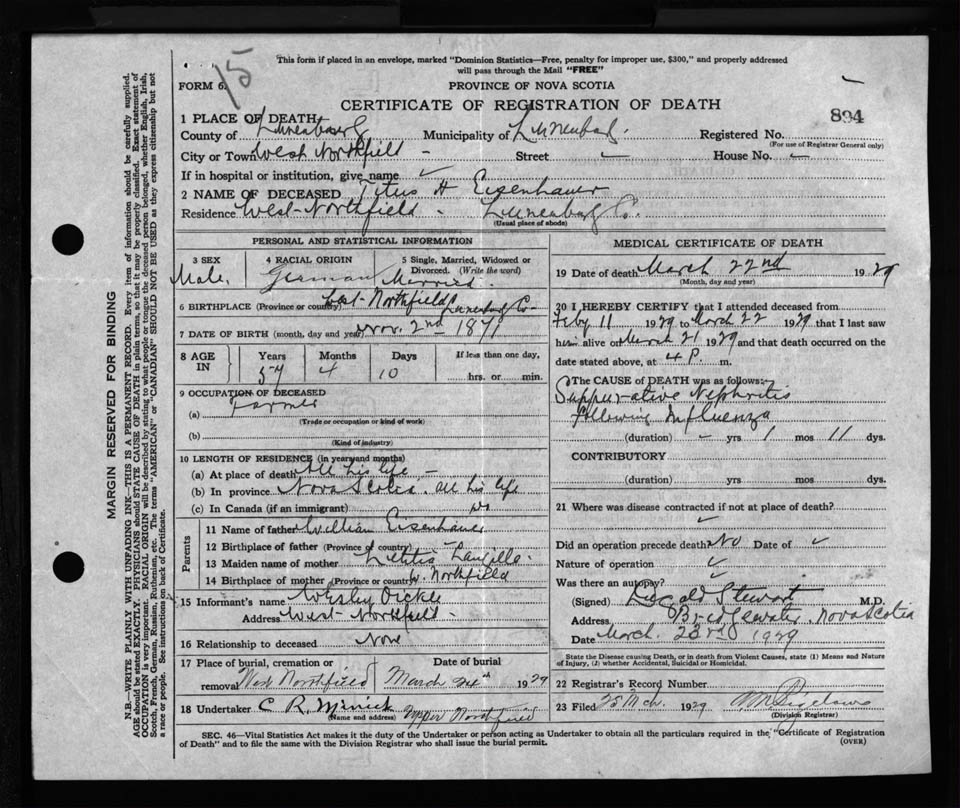 15
This form if placed in an envelope, marked "Dominion Statistics—Free, penalty for improper use, $300," and properly addressed
will pass through the Mail "FREE"
FORM 6.
PROVINCE OF NOVA SCOTIA
CERTIFICATE OF REGISTRATION OF DEATH
894
1 PLACE OF DEATH
County of Lunenburg Municipality of Lunenburg. Registered No.
(For use of Registrar General only)
City or Town West Northfield – Street ✓ House No. ✓
If in hospital or institution, give name ✓
2 NAME OF DECEASED Titus H Eisenhauer
Residence West-Northfield – Lunenburg Co.
(Usual place of abode)
PERSONAL AND STATISTICAL INFORMATION
3 SEX 4 RACIAL ORIGIN 5 Single, Married, Widowed or
Divorced. (Write the word)
Male, German Married.
6 BIRTHPLACE (Province or country) West-Northfield Lunenburg Co–
7 DATE OF BIRTH (month, day and year) Nov. 2nd 1871
8 AGE IN Years Months Days If less than one day,
57 4 10 hrs. or min.
9 OCCUPATION OF DECEASED
(a) Farmer
(Trade or occupation or kind of work)
(b)
(Kind of industry)
10 LENGTH OF RESIDENCE (in years and months)
(a) At place of death All his life –
(b) In province Nova Scotia. all his life
(c) In Canada (if an immigrant)
Parents
11 Name of father William Eisenhauer
12 Birthplace of father (Province or country)
13 Maiden name of mother Langille
14 Birthplace of mother (Province or country) W. Northfield
15 Informant's name Wesley Oickle
Address West-Northfield –
16 Relationship to deceased None
17 Place of burial, cremation or Date of burial
removal West Northfield March 24th 1929
18 Undertaker C R. Minick Upper Northfield
(Name and address)
MEDICAL CERTIFICATE OF DEATH
19 Date of death March 22nd 1929
(Month, day and year)
20 I HEREBY CERTIFY that I attended deceased from
Feby 11 1929 to March 22 1929 that I last saw
him alive on March 21 1929 and that death occurred on the
date stated above, at 4 P. m.
The CAUSE OF DEATH was as follows:
Suppurative Nephritis
following Influenza
(duration) – yrs 1 mos 11 dys.
CONTRIBUTORY
(duration) yrs. mos. dys.
21 Where was disease contracted if not at place of death?
✓
Did an operation precede death? No Date of ✓
Nature of operation ✓
Was there an autopsy? ✓
(Signed) Dugald Stewart M.D.
Address Bridgewater, Nova Scotia
Date March. 23rd 1929
State the Disease causing Death, or in death from Violent Causes, state (1) Means and Nature
of Injury, (2) whether Accidental, Suicidal or Homicidal.
22 Registrar's Record Number
23 Filed 25 Mch. 1929
(Division Registrar)
SEC. 46—Vital Statistics Act makes it the duty of the Undertaker or person acting as Undertaker to obtain all the particulars required in the "Certificate of Registration
of Death" and to file the same with the Division Registrar who shall issue the burial permit.
(OVER)
MARGIN RESERVED FOR BINDING
N.B.—WRITE PLAINLY WITH UNFADING INK—THIS IS A PERMANENT RECORD. Every item of information should be carefully supplied.
AGE should be stated EXACTLY. PHYSICIANS should STATE CAUSE OF DEATH in plain terms, so that it may be properly classified. Exact statement of
OCCUPATION is very important. RACIAL ORIGIN will be described by stating to what people or tongue the deceased person belonged, whether English, Irish,
Scotch, French, German, Russian, Ruthenian, etc. The terms "AMERICAN" or "CANADIAN" SHOULD NOT BE USED as they express citizenship but not
a race or people. See instructions on back of Certificate.